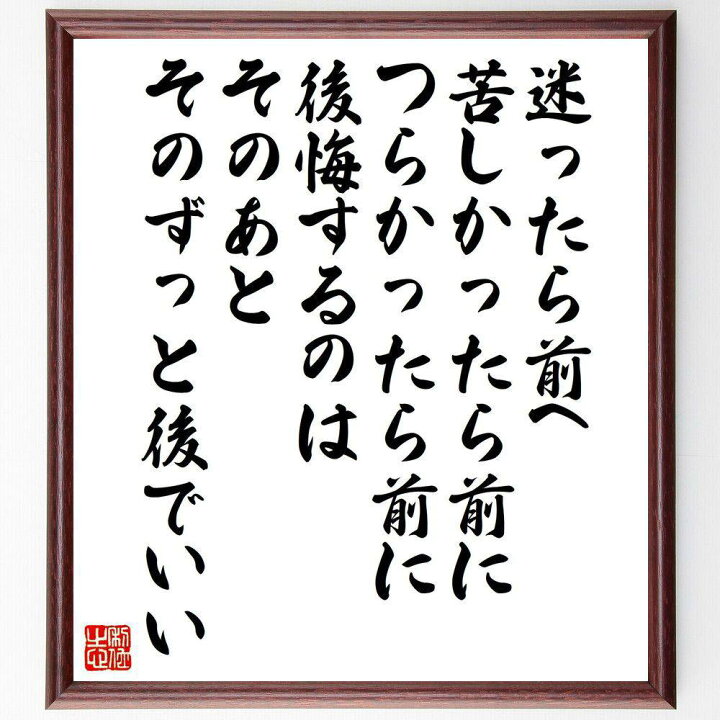 迷ったら前へ
苦しかったら前に
つらかったら前に
後悔するのは
そのあと
そのずっと後でいい